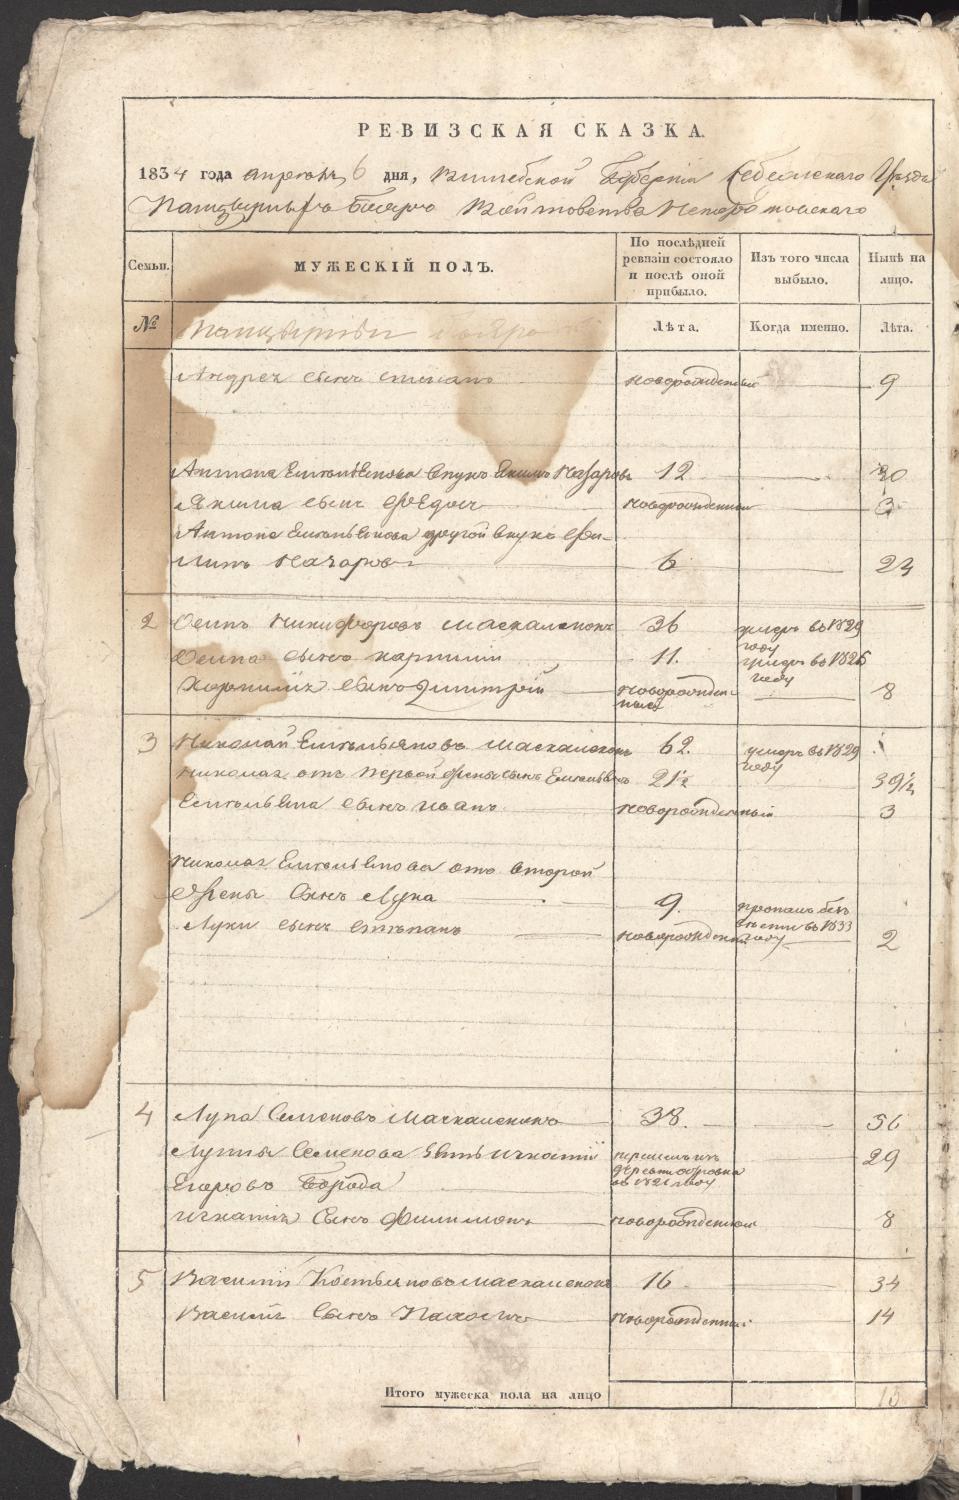 РЕВИЗСКАЯ СКАЗКА.
1834 года апреля 6 дня, Витебской Губернїи Себежскаго Уѣзда
Панцырныхъ Бояръ Войтовства Непоротовскаго
Семьи.
МУЖЕСКІЙ ПОЛЪ.
По послѣдней ревизіи состояло и послѣ оной прибыло.
Изъ того числа выбыло.
Нынѣ на лицо.
№
Лѣта.
Когда именно.
Лѣта.
Андрея сынъ новорожденный 9
Антона Емельянова внукъ Екимъ Назаровъ 12 30
Якима сынъ Ѳедоръ новорожденный 3
Антона Емельянова другой внукъ Фи-
липъ Назаровъ 6 24
2 Осипъ Никифоровъ Маскаленокъ 36 умеръ въ 1829 году
Осипа сынъ 11. умеръ въ 1826 году
сынъ Дмитрій новорожден-ный 8
3 Николай Емельяновъ Маскаленокъ 62. умеръ въ 1829 году
Николая отъ первой жены сынъ Емельянъ 21½ 39½
Емельяна сынъ Иванъ новорожденный 3
Николая Емельянова отъ второй
жены сынъ Лука 9. пропалъ безъ вѣсти въ 1833 году
Луки сынъ Степанъ новорожденный 2
4 Лупа Семеновъ Маскаленокъ 38. 56
Луппы Семенова зять Игнатій 29
Егоровъ Борода
Игнатія сынъ Филимонъ новорожденный 8
5 Василій Маскаленокъ 16 34
Василія сынъ новорожденный 14
Итого мужеска пола на лицо 13